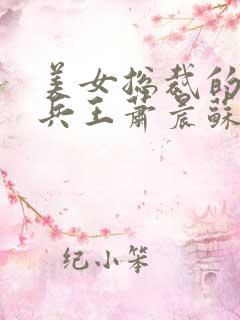 美女总裁的
兵王萧晨蘇
纪小笨